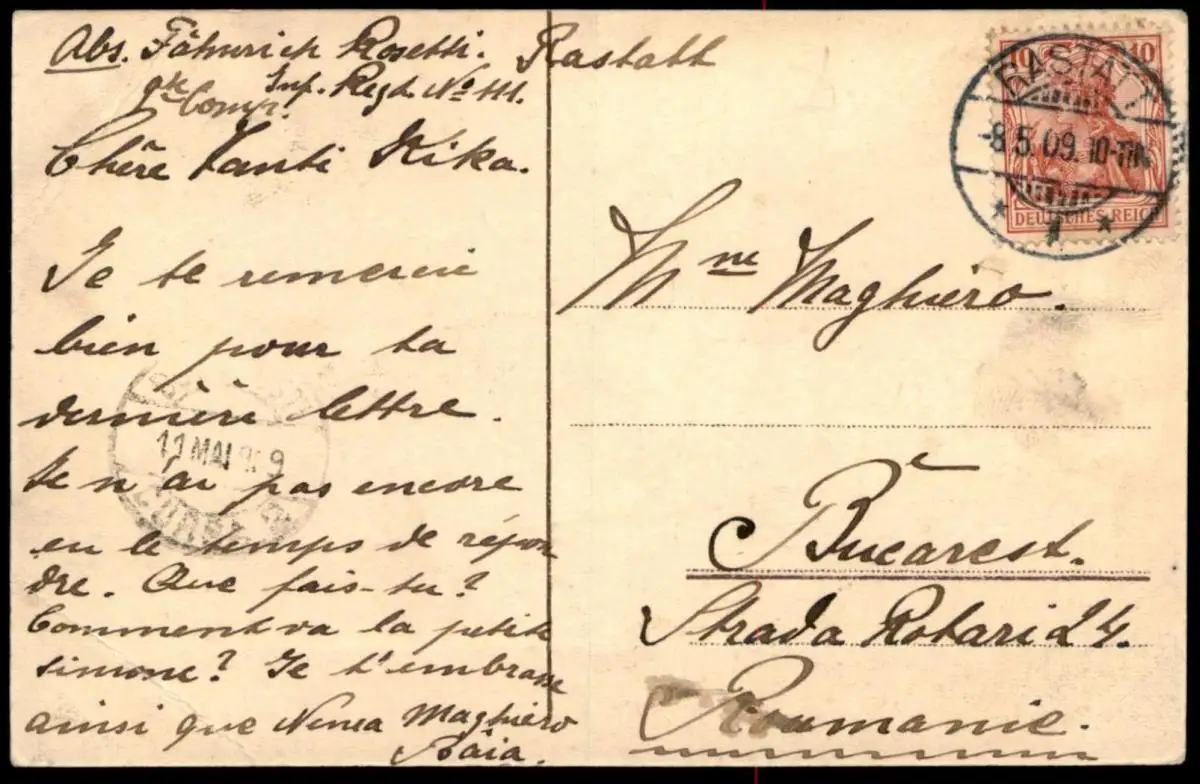 Abs. Fähnrich Rosetti. Rastatt
Inf. Regt. No 111.
9te Comp.
Chère Tanti Kika.
Je te remercie
bien pour ta
dernière lettre.
Je n'ai pas encore
eu le temps de répon
dre. Que fais-tu?
Comment va la petite
simone? Je t'embrasse
ainsi que Nenea Maghiero
RASTATT
-8.5.09. 10-11N.
10 10
DEUTSCHES REICH
Mme Maghiero.
Bucarest.
Strada Rotari 24.
Roumanie.
11 MAI 909